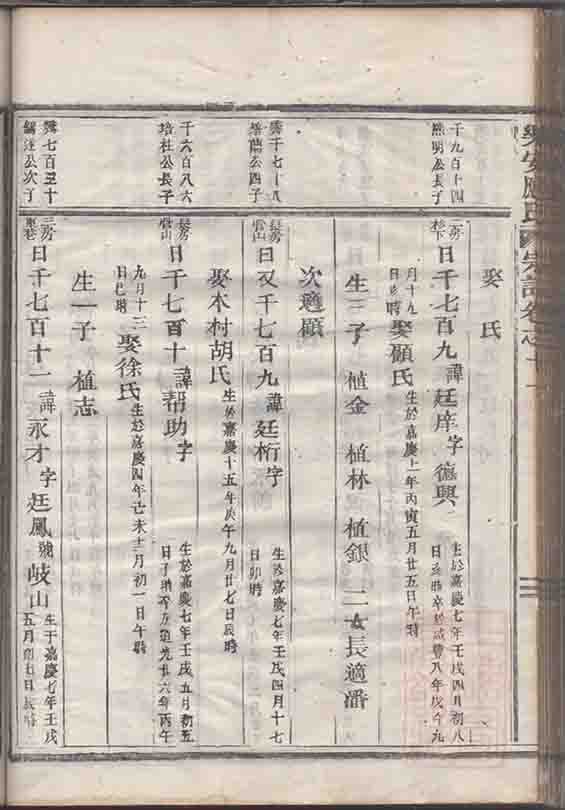 樂安應氏宗譜卷之十一
娶氏
千九百十四
熊明公長子
二房
杉下
日千七百九諱廷庠字德興
生於嘉慶七年壬戌四月初八
日亥時卒於咸豐八年戊午九
月十九
日亥時
娶顧氏
生於嘉慶十一年丙寅五月廿五日午時
生三子 植金 植林 植銀 二女長適潘
次適顧
培蘭公四子
長房
雪山
日又千七百九諱廷桁字
生於嘉慶七年壬戌四月十七
日卯時
娶木村胡氏
生於嘉慶十五年庚午九月廿七日辰時
千六百八六
培杜公長子
長房
雪山
日千七百十諱帮助字
生於嘉慶七年壬戌五月初五
日子時卒於道光廿六年丙午
九月十三
日巳時
娶徐氏
生於嘉慶四年己未十二月初一日午時
生一子 植志
七百五十
公次子
三房
東巷
日千七百十一諱永才字廷鳳號岐山
生于嘉慶七年壬戌
五月初七日辰時